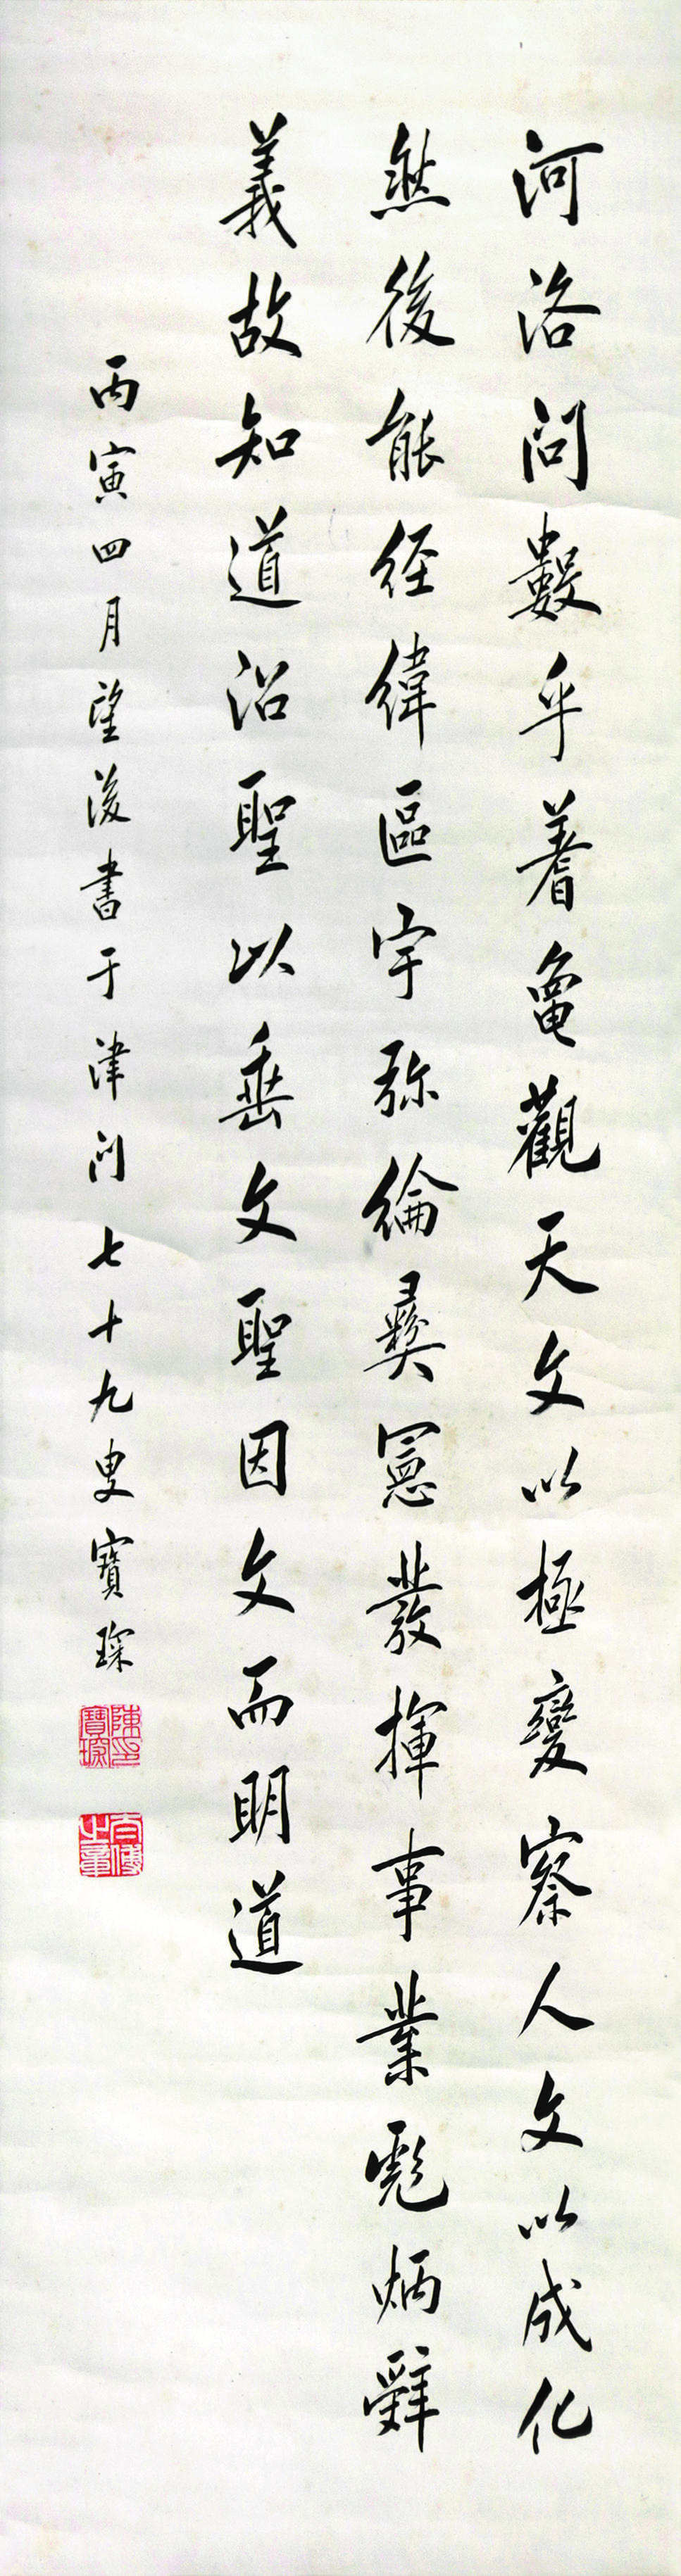 河洛問數乎蓍龜觀天文以極變察人文以成化
然後能經緯區宇弥綸彝憲發揮事業彪炳辭
義故知道沿聖以垂文聖因文而明道
丙寅四月望後書于津门七十九叟寶琛
陳寶琛印
太傅之章